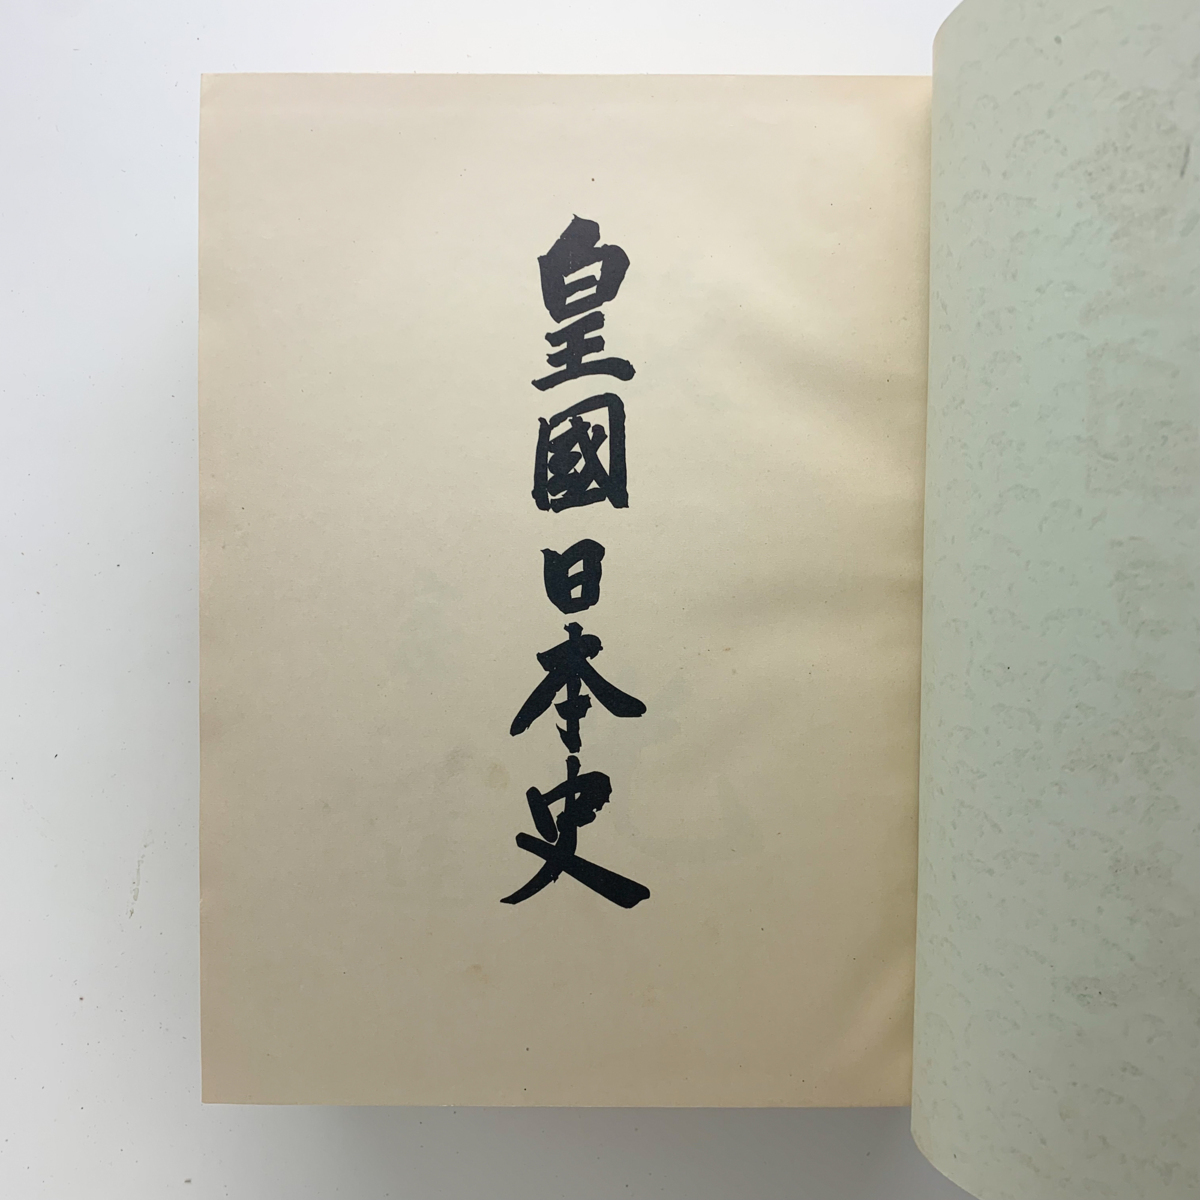 皇國日本史